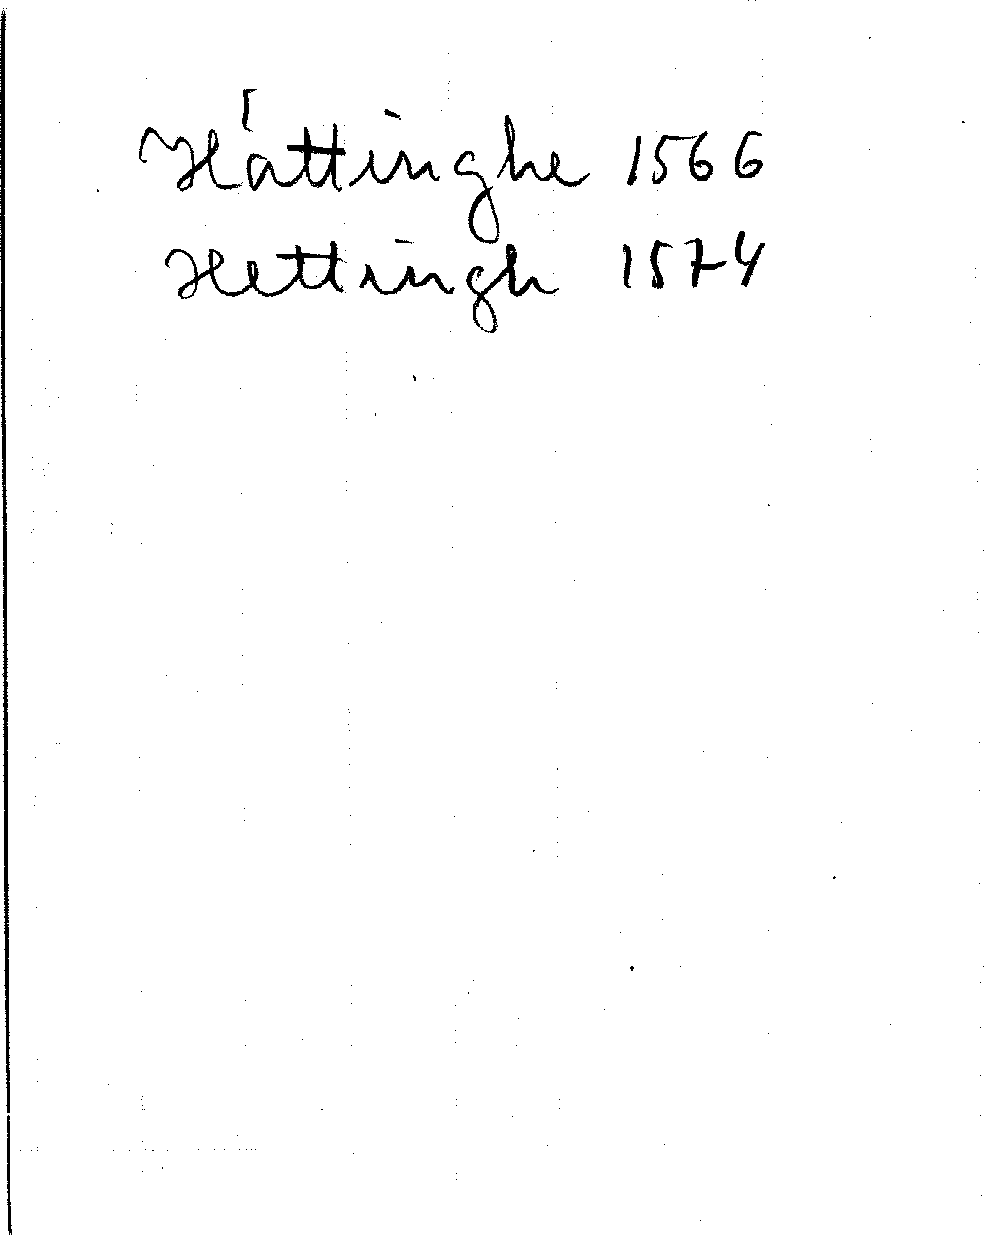 Háttinghe 1566
Hettingh 1574